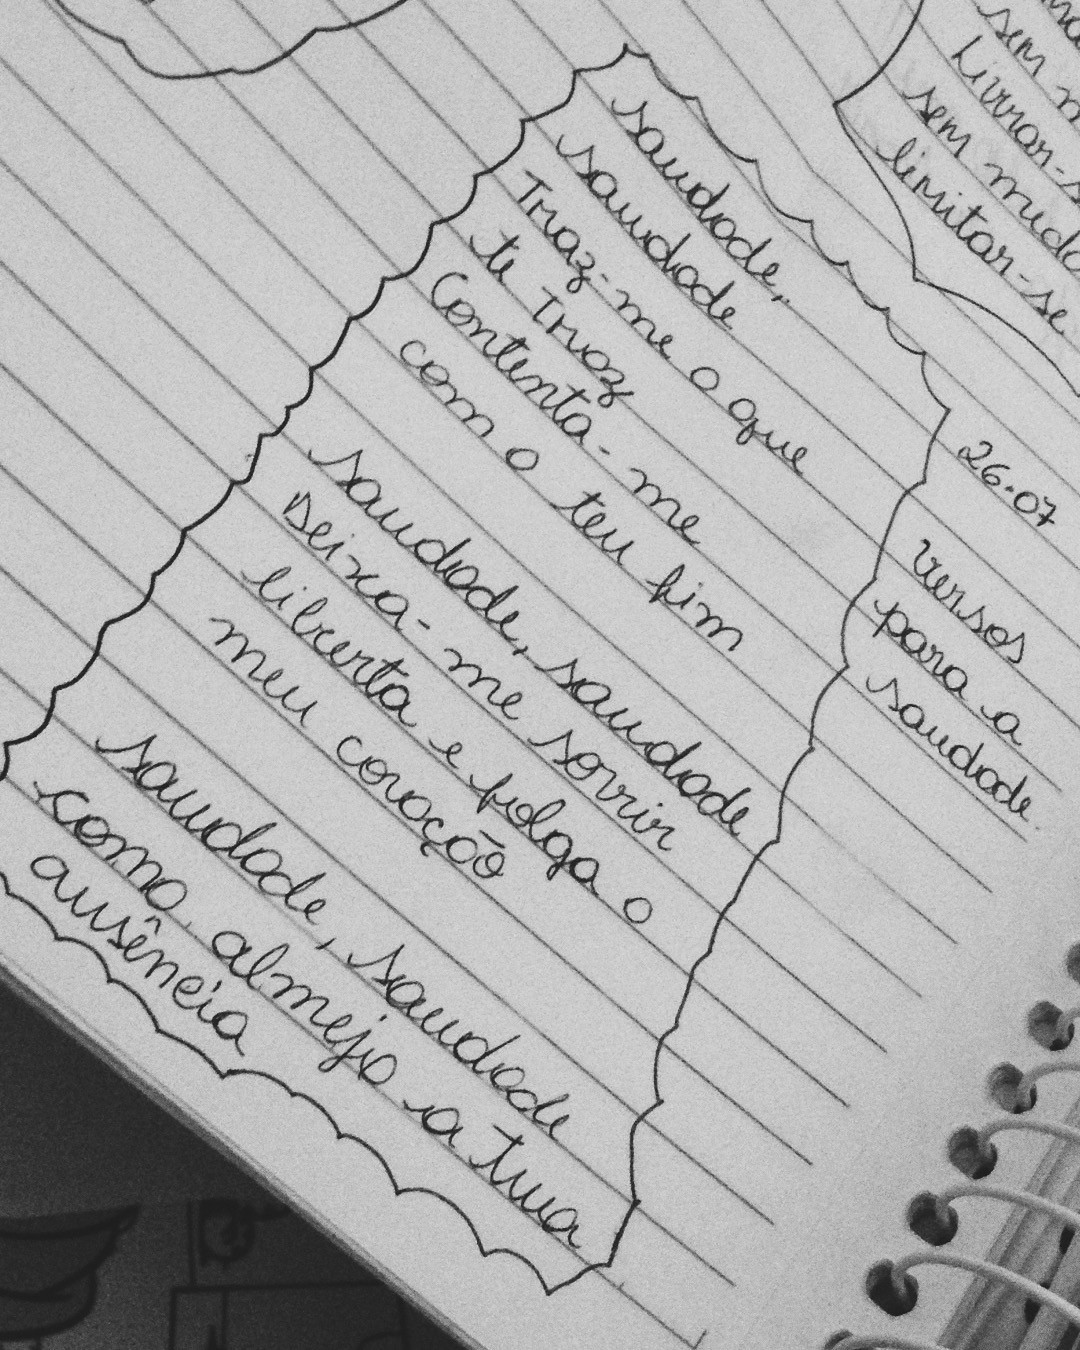 saudade,
saudade
Traz-me o que
te Traz
Contenta-me
com o teu fim
saudade, saudade
Deixa-me sorrir
liberta e folga o
meu coração
saudade, saudade
como almejo a tua
ausência
26.07
versos
para a
saudade.
sem
Livrar-s
sem medo
limitar-se